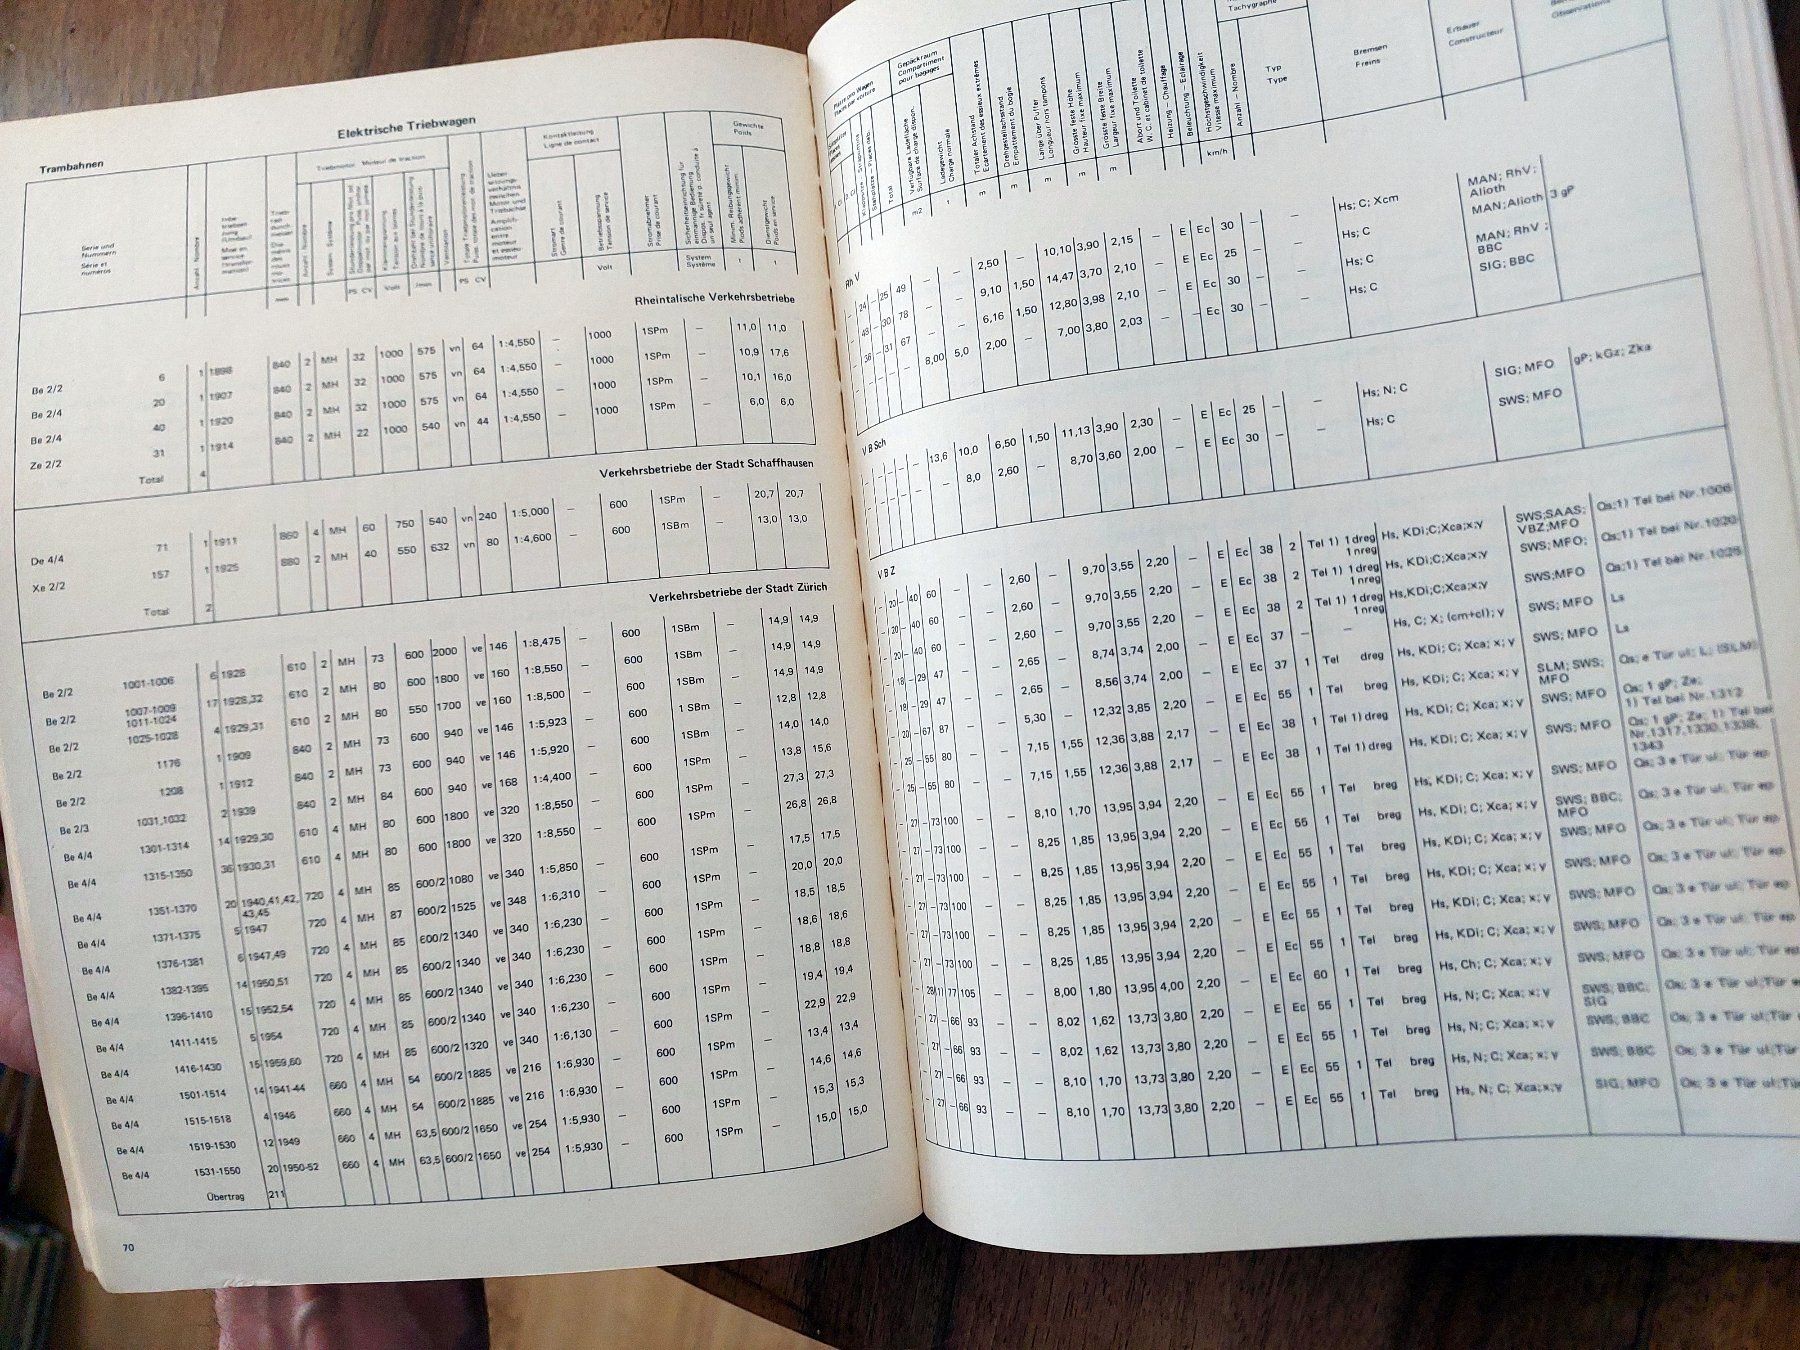 Trambahnen
Elektrische Triebwagen
Serie und Nummern
Série et numéros
Anzahl · Nombre
Triebmotor Moteur de traction
Kontaktleitung
Ligne de contact
Stromart
Genre de courant
Betriebsspannung
Tension de service
Stromabnehmer
Prise de courant
Gewichte
Poids
Minim. Reibungsgewicht
Poids adhérent minim.
Dienstgewicht
Poids en service
PS CV Volt /min PS CV Volt System Système t t
Rheintalische Verkehrsbetriebe
Be 2/2 6 1 1898 840 2 MH 32 1000 575 vn 64 1:4,550 – 1000 1SPm – 11,0 11,0
Be 2/4 20 1 1907 840 2 MH 32 1000 575 vn 64 1:4,550 – 1000 1SPm – 10,9 17,6
Be 2/4 40 1 1920 840 2 MH 32 1000 575 vn 64 1:4,550 – 1000 1SPm – 10,1 16,0
Ze 2/2 31 1 1914 840 2 MH 22 1000 540 vn 44 1:4,550 – 1000 1SPm – 6,0 6,0
Total 4
Verkehrsbetriebe der Stadt Schaffhausen
De 4/4 71 1 1911 860 4 MH 60 750 540 vn 240 1:5,000 – 600 1SPm – 20,7 20,7
Xe 2/2 157 1 1925 880 2 MH 40 550 632 vn 80 1:4,600 – 600 1SBm – 13,0 13,0
Total 2
Verkehrsbetriebe der Stadt Zürich
Be 2/2 1001-1006 6 1928 610 2 MH 73 600 2000 ve 146 1:8,475 – 600 1SBm – 14,9 14,9
Be 2/2 1007-1009 17 1928,32 610 2 MH 80 600 1800 ve 160 1:8,550 – 600 1SBm – 14,9 14,9
1011-1024
Be 2/2 1025-1028 4 1929,31 610 2 MH 80 550 1700 ve 160 1:8,500 – 600 1SBm – 14,9 14,9
Be 2/2 1176 1 1909 840 2 MH 73 600 940 ve 146 1:5,923 – 600 1 SBm – 12,8 12,8
Be 2/2 1208 1 1912 840 2 MH 73 600 940 ve 146 1:5,920 – 600 1SBm – 14,0 14,0
Be 2/3 1031,1032 2 1939 840 2 MH 84 600 940 ve 168 1:4,400 – 600 1SPm – 13,8 15,6
Be 4/4 1301-1314 14 1929,30 610 4 MH 80 600 1800 ve 320 1:8,550 – 600 1SPm – 27,3 27,3
Be 4/4 1315-1350 36 1930,31 610 4 MH 80 600 1800 ve 320 1:8,550 – 600 1SPm – 26,8 26,8
Be 4/4 1351-1370 20 1940,41,42, 720 4 MH 85 600/2 1080 ve 340 1:5,850 – 600 1SPm – 17,5 17,5
43,45
Be 4/4 1371-1375 5 1947 720 4 MH 87 600/2 1525 ve 348 1:6,310 – 600 1SPm – 20,0 20,0
Be 4/4 1376-1381 6 1947,49 720 4 MH 85 600/2 1340 ve 340 1:6,230 – 600 1SPm – 18,5 18,5
Be 4/4 1382-1395 14 1950,51 720 4 MH 85 600/2 1340 ve 340 1:6,230 – 600 1SPm – 18,6 18,6
Be 4/4 1396-1410 15 1952,54 720 4 MH 85 600/2 1340 ve 340 1:6,230 – 600 1SPm – 18,8 18,8
Be 4/4 1411-1415 5 1954 720 4 MH 85 600/2 1340 ve 340 1:6,230 – 600 1SPm – 19,4 19,4
Be 4/4 1416-1430 15 1959,60 720 4 MH 85 600/2 1320 ve 340 1:6,130 – 600 1SPm – 22,9 22,9
Be 4/4 1501-1514 14 1941-44 660 4 MH 54 600/2 1885 ve 216 1:6,930 – 600 1SPm – 13,4 13,4
Be 4/4 1515-1518 4 1946 660 4 MH 54 600/2 1885 ve 216 1:6,930 – 600 1SPm – 14,6 14,6
Be 4/4 1519-1530 12 1949 660 4 MH 63,5 600/2 1650 ve 254 1:5,930 – 600 1SPm – 15,3 15,3
Be 4/4 1531-1550 20 1950-52 660 4 MH 63,5 600/2 1650 ve 254 1:5,930 – 600 1SPm – 15,0 15,0
Übertrag 211
70
Gepäckraum
Compartiment
pour bagages
Total
Verfügbare Ladefläche
Surface de charge dispon.
Ladegewicht
Charge normale
Totaler Achstand
Ecartement des essieux extrêmes
Drehgestellachsstand
Empattement du bogie
Länge über Puffer
Longueur hors tampons
Grösste feste Höhe
Hauteur fixe maximum
Grösste feste Breite
Largeur fixe maximum
Abort und Toilette
W. C. et cabinet de toilette
Heizung – Chauffage
Beleuchtung – Eclairage
Höchstgeschwindigkeit
Vitesse maximum
Tachygraphe
Anzahl – Nombre
Typ
Type
Bremsen
Freins
Erbauer
Constructeur
Observations
m2 t m m m m m km/h
Rh V
– 24 – 25 49 – – 2,50 – 10,10 3,90 2,15 – E Ec 30 – – Hs; C; Xcm MAN; RhV; Alioth
– 48 – 30 78 – – 9,10 1,50 14,47 3,70 2,10 – E Ec 25 – – Hs; C MAN; Alioth 3 gP
– 36 – 31 67 – – 6,16 1,50 12,80 3,98 2,10 – E Ec 30 – – Hs; C MAN; RhV; BBC
8,00 5,0 2,00 – 7,00 3,80 2,03 – – Ec 30 – – Hs; C SIG; BBC
V B Sch
– – – – – 13,6 10,0 6,50 1,50 11,13 3,90 2,30 – E Ec 25 – – Hs; N; C SIG; MFO gP; kGz; Zka
– – – – – 8,0 2,60 – 8,70 3,60 2,00 – E Ec 30 – – Hs; C SWS; MFO
V B Z
– 20 – 40 60 – – 2,60 – 9,70 3,55 2,20 – E Ec 38 2 Tel 1) 1 dreg Hs, KDi;C;Xca;x;y SWS;SAAS; Os;1) Tel bei Nr.1006
1 nreg VBZ;MFO
– 20 – 40 60 – – 2,60 – 9,70 3,55 2,20 – E Ec 38 2 Tel 1) 1 dreg Hs, KDi;C;Xca;x;y SWS; MFO; Os;1) Tel bei Nr.1020
1 nreg
– 20 – 40 60 – – 2,60 – 9,70 3,55 2,20 – E Ec 38 2 Tel 1) 1 dreg Hs,KDi;C;Xca;x;y SWS;MFO Os;1) Tel bei Nr.1025
1 nreg
– 18 – 29 47 – – 2,65 – 8,74 3,74 2,00 – E Ec 37 – – Hs, C; X; (cm+cl); y SWS; MFO Ls
– 18 – 29 47 – – 2,65 – 8,56 3,74 2,00 – E Ec 37 1 Tel dreg Hs, KDi; C; Xca; x; y SWS; MFO Ls
– 20 – 67 87 – – 5,30 – 12,32 3,85 2,20 – E Ec 55 1 Tel breg Hs, KDi; C; Xca; x; y SLM; SWS; MFO Os; e Tür ul; L; (SLM)
– 25 – 55 80 – – 7,15 1,55 12,36 3,88 2,17 – E Ec 38 1 Tel 1) dreg Hs, KDi; C; Xca; x; y SWS; MFO Os; 1 gP; Ze;
1) Tel bei Nr.1312
– 25 – 55 80 – – 7,15 1,55 12,36 3,88 2,17 – E Ec 38 1 Tel 1) dreg Hs, KDi; C; Xca; x; y SWS; MFO Os; 1 gP; Ze; 1) Tel bei
Nr.1317,1330,1338,
1343
– 27 – 73 100 – – 8,10 1,70 13,95 3,94 2,20 – E Ec 55 1 Tel breg Hs, KDi; C; Xca; x; y SWS; MFO Os; 3 e Tür ul; Tür ep
– 27 – 73 100 – – 8,25 1,85 13,95 3,94 2,20 – E Ec 55 1 Tel breg Hs, KDi; C; Xca; x; y SWS; BBC; MFO Os; 3 e Tür ul; Tür ep
– 27 – 73 100 – – 8,25 1,85 13,95 3,94 2,20 – E Ec 55 1 Tel breg Hs, KDi; C; Xca; x; y SWS; MFO Os; 3 e Tür ul; Tür ep
– 27 – 73 100 – – 8,25 1,85 13,95 3,94 2,20 – E Ec 55 1 Tel breg Hs, KDi; C; Xca; x; y SWS; MFO Os; 3 e Tür ul; Tür ep
– 27 – 73 100 – – 8,25 1,85 13,95 3,94 2,20 – E Ec 55 1 Tel breg Hs, KDi; C; Xca; x; y SWS; MFO Os; 3 e Tür ul; Tür ep
– 27 – 73 100 – – 8,25 1,85 13,95 3,94 2,20 – E Ec 55 1 Tel breg Hs, KDi; C; Xca; x; y SWS; MFO Os; 3 e Tür ul; Tür ep
– 28 11 77 105 – – 8,00 1,80 13,95 4,00 2,20 – E Ec 60 1 Tel breg Hs, Ch; C; Xca; x; y SWS; MFO Os; 3 e Tür ul; Tür ep
– 27 – 66 93 – – 8,02 1,62 13,73 3,80 2,20 – E Ec 55 1 Tel breg Hs, N; C; Xca; x; y SWS; BBC; SIG Os; 3 e Tür ul;Tür
– 27 – 66 93 – – 8,02 1,62 13,73 3,80 2,20 – E Ec 55 1 Tel breg Hs, N; C; Xca; x; y SWS; BBC Os; 3 e Tür ul;Tür
– 27 – 66 93 – – 8,10 1,70 13,73 3,80 2,20 – E Ec 55 1 Tel breg Hs, N; C; Xca; x; y SWS; BBC Os; 3 e Tür ul;Tür
– 27 – 66 93 – – 8,10 1,70 13,73 3,80 2,20 – E Ec 55 1 Tel breg Hs, N; C; Xca;x;y SIG; MFO Os; 3 e Tür ul;Tür